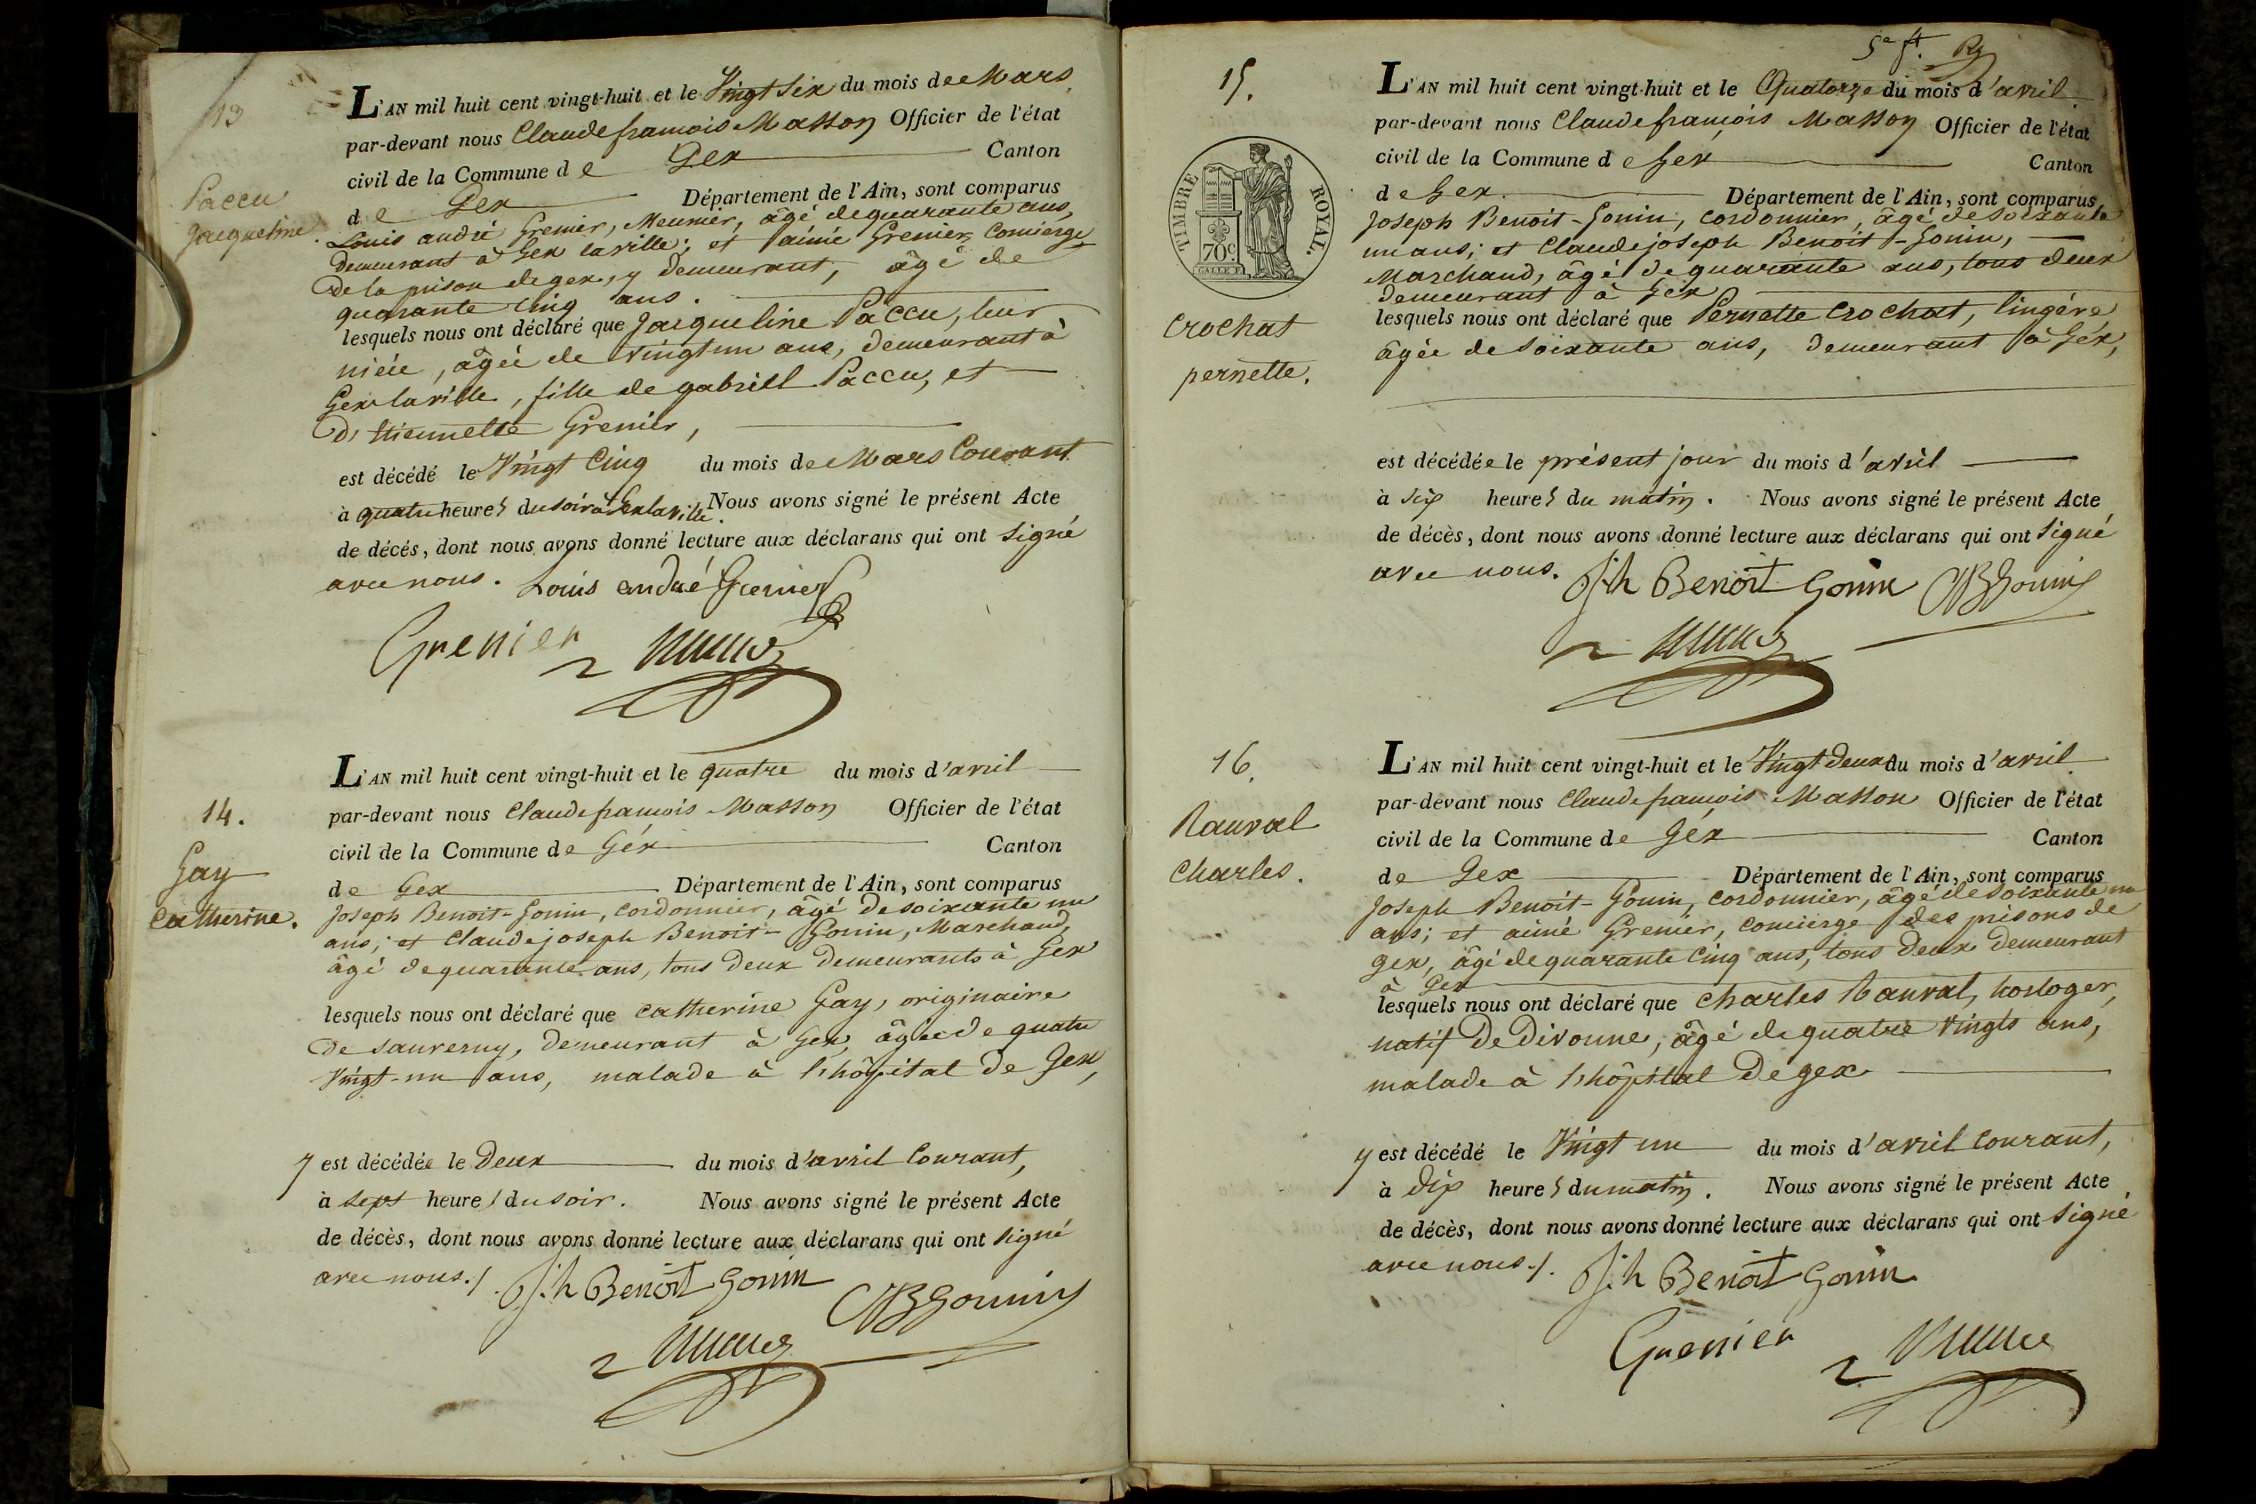 13
Paccu
Jacqueline.
L'AN mil huit cent vingt-huit et le Vingt six du mois de Mars
par-devant nous Claude françois Masson Officier de l'état
civil de la Commune de Gex Canton
de Gex Département de l'Ain, sont comparus
Louis andré Grenier, Meunier, âgé de quarante ans,
demeurant à Gex la ville; et aimé Grenier, Concierge
de la prison de gex, y demeurant, âgé de
quarante cinq ans.
lesquels nous ont déclaré que Jacqueline Paccu, leur
niéce, âgée de vingt un ans, demeurant à
Gex la ville, fille de gabriel Paccu, et
d'Etiennette Grenier,
est décédé le Vingt Cinq du mois de Mars Courant
à quatre heures du soir à Gex la ville. Nous avons signé le présent Acte
de décés, dont nous avons donné lecture aux déclarans qui ont signé
avec nous. Louis andré Grenier
Grenier
14.
Gay
Catherine.
L'AN mil huit cent vingt-huit et le quatre du mois d'avril
par-devant nous Claude françois Masson Officier de l'état
civil de la Commune de Géx Canton
de Gex Département de l'Ain, sont comparus
Joseph Benoit-Gonin, cordonnier, âgé de soixante un
ans; et Claude joseph Benoit-Gonin, Marchand,
âgé de quarante ans, tous deux demeurants à Gex
lesquels nous ont déclaré que Catherine Gay, originaire
de sauverny, demeurant à Gex, âgée de quatre
Vingt-un ans, malade à l'hôpital de Gex,
y est décédée le Deux du mois d'avril Courant,
à sept heures du soir. Nous avons signé le présent Acte
de décès, dont nous avons donné lecture aux déclarans qui ont signé
avec nous./. Jh Benoit Gonin
CJBGonin
5e ft.
15.
TIMBRE ROYAL.
70 c.
Crochat
pernette.
L'AN mil huit cent vingt-huit et le Quatorze du mois d'avril
par-devant nous Claude françois Masson Officier de l'état
civil de la Commune de Gex Canton
de Gex. Département de l'Ain, sont comparus
Joseph Benoit-Gonin, cordonnier, âgé de soixante
un ans; et Claude joseph Benoit-Gonin,
Marchand, âgé de quarante ans, tous deux
demeurant à Géx
lesquels nous ont déclaré que Pernette Crochat, lingére
âgée de soixante ans, demeurant à Géx,
est décédée le présent jour du mois d'avril
à six heures du matin. Nous avons signé le présent Acte
de décès, dont nous avons donné lecture aux déclarans qui ont signé
avec nous. Jh Benoit Gonin CJBGonin
16.
Rauval
Charles.
L'AN mil huit cent vingt-huit et le Vingt deux du mois d'avril
par-devant nous Claude françois Masson Officier de l'état
civil de la Commune de Géx Canton
de Gex Département de l'Ain, sont comparus
Joseph Benoit-Gonin, cordonnier, âgé de soixante un
ans; et aimé Grenier, concierge des prisons de
gex, âgé de quarante cinq ans, tous deux demeurant
à Gex
lesquels nous ont déclaré que Charles Rauval, horloger,
natif de Divonne, âgé de quatre vingts ans,
malade à l'hôpital de gex
y est décédé le Vingt un du mois d'avril courant,
à dix heures du matin. Nous avons signé le présent Acte
de décès, dont nous avons donné lecture aux déclarans qui ont signé
avec nous./. Jh Benoit Gonin
Grenier